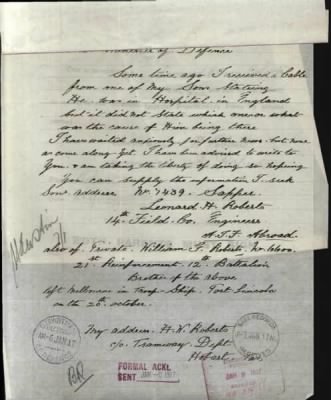 Minister of Defence
Some time ago I received a Cable
from one of My Sons Stateing
He was in Hospital in England
but it did not State which one or what
was the cause of Him being there
I have waited for further news but none
as come along yet I been advised to write to
You. I am taking the liberty of doing so hoping
You can supply the information I seek
Sons address No 7439. Sapper.
Leonard H. Roberts
14th Field Co. Engineers
A.I.F. Abroad.
also of Private William F. Roberts. No 6600.
21st Reinforcement 12th Battalion
Brother of the above
left Melbourne in Troop Ship. Port Lincoln
on the 20th October.
My address. H. W. Roberts
c/o. Tramway Dept
Hobart. Tas
FORMAL ACKT.
SENT